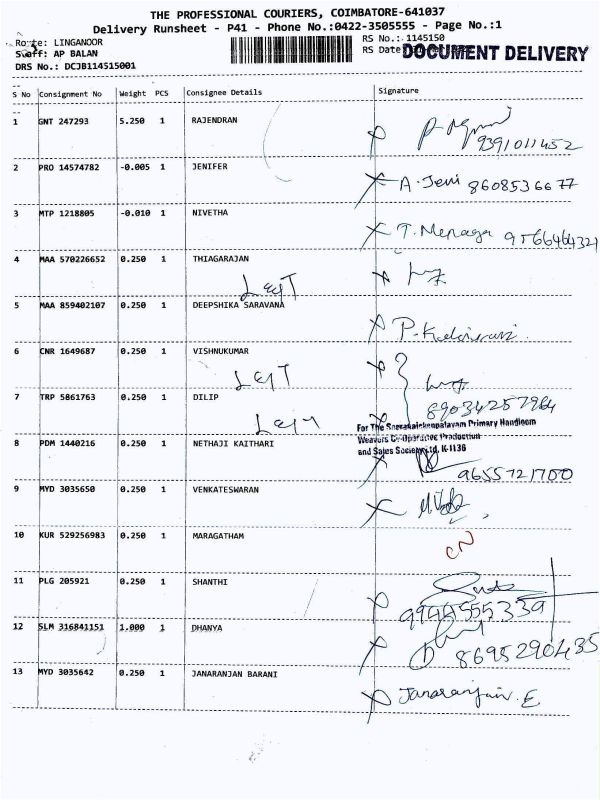 THE PROFESSIONAL COURIERS, COIMBATORE-641037
Delivery Runsheet - P41 - Phone No.:0422-3505555 - Page No.:1
Route: LINGANOOR
RS No.: 1145150
Staff: AP BALAN
RS Date
DOCUMENT DELIVERY
DRS No.: DCJB114515001
S No Consignment No Weight PCS Consignee Details Signature
1 GNT 247293 5.250 1 RAJENDRAN
9391011452
2 PRO 14574782 -0.005 1 JENIFER A. Jeni 8608536677
3 MTP 1218805 -0.010 1 NIVETHA T. Menaga 9566464321
4 MAA 570226652 0.250 1 THIAGARAJAN
Left
5 MAA 859402107 0.250 1 DEEPSHIKA SARAVANA
6 CNR 1649687 0.250 1 VISHNUKUMAR
Left
7 TRP 5861763 0.250 1 DILIP
89034257964
For The Primary Handloom
Weavers Co-Operative Production
and Sales Society Ltd, K-1136
8 PDM 1440216 0.250 1 NETHAJI KAITHARI
9655721700
9 MYD 3035650 0.250 1 VENKATESWARAN
10 KUR 529256983 0.250 1 MARAGATHAM CN
11 PLG 205921 0.250 1 SHANTHI
9944555339
12 SLM 316841151 1.000 1 DHANYA
8695290435
13 MYD 3035642 0.250 1 JANARANJAN BARANI Janaranjan. E